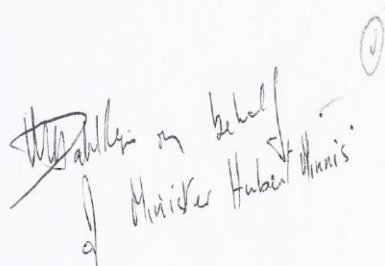 on behalf
of Minister Hubert Minnis